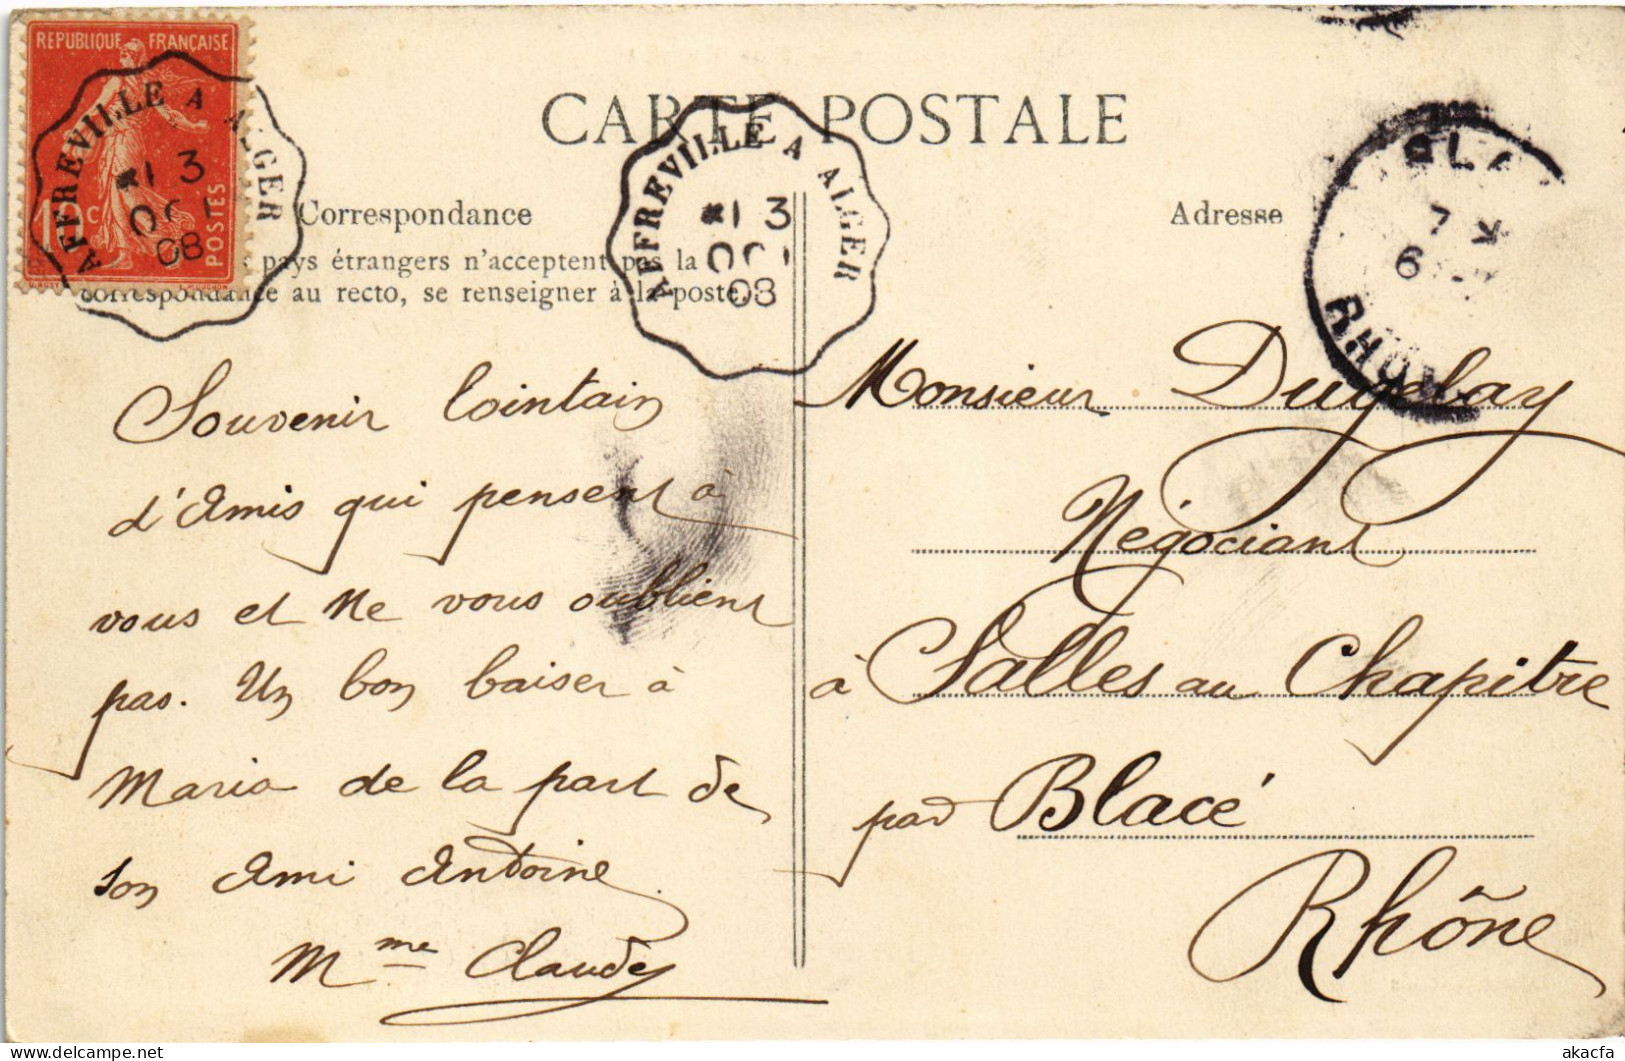 REPUBLIQUE FRANÇAISE
POSTES
10 c
AFFREVILLE A ALGER
*1 3
OCT
08
CARTE POSTALE
AFFREVILLE A ALGER
*1 3
OCT
08
7
6
RHONE
Correspondance
pays étrangers n'acceptent pas la
correspondance au recto, se renseigner à la poste.
Adresse
Souvenir lointain
d'Amis qui pensent à
vous et ne vous oublient
pas. Un bon baiser à
Maria de la part de
son Ami Antoine.
Mme Claudy
Monsieur Dugelay
Négociant
à Salles au Chapitre
par Blacé
Rhône
akacfa